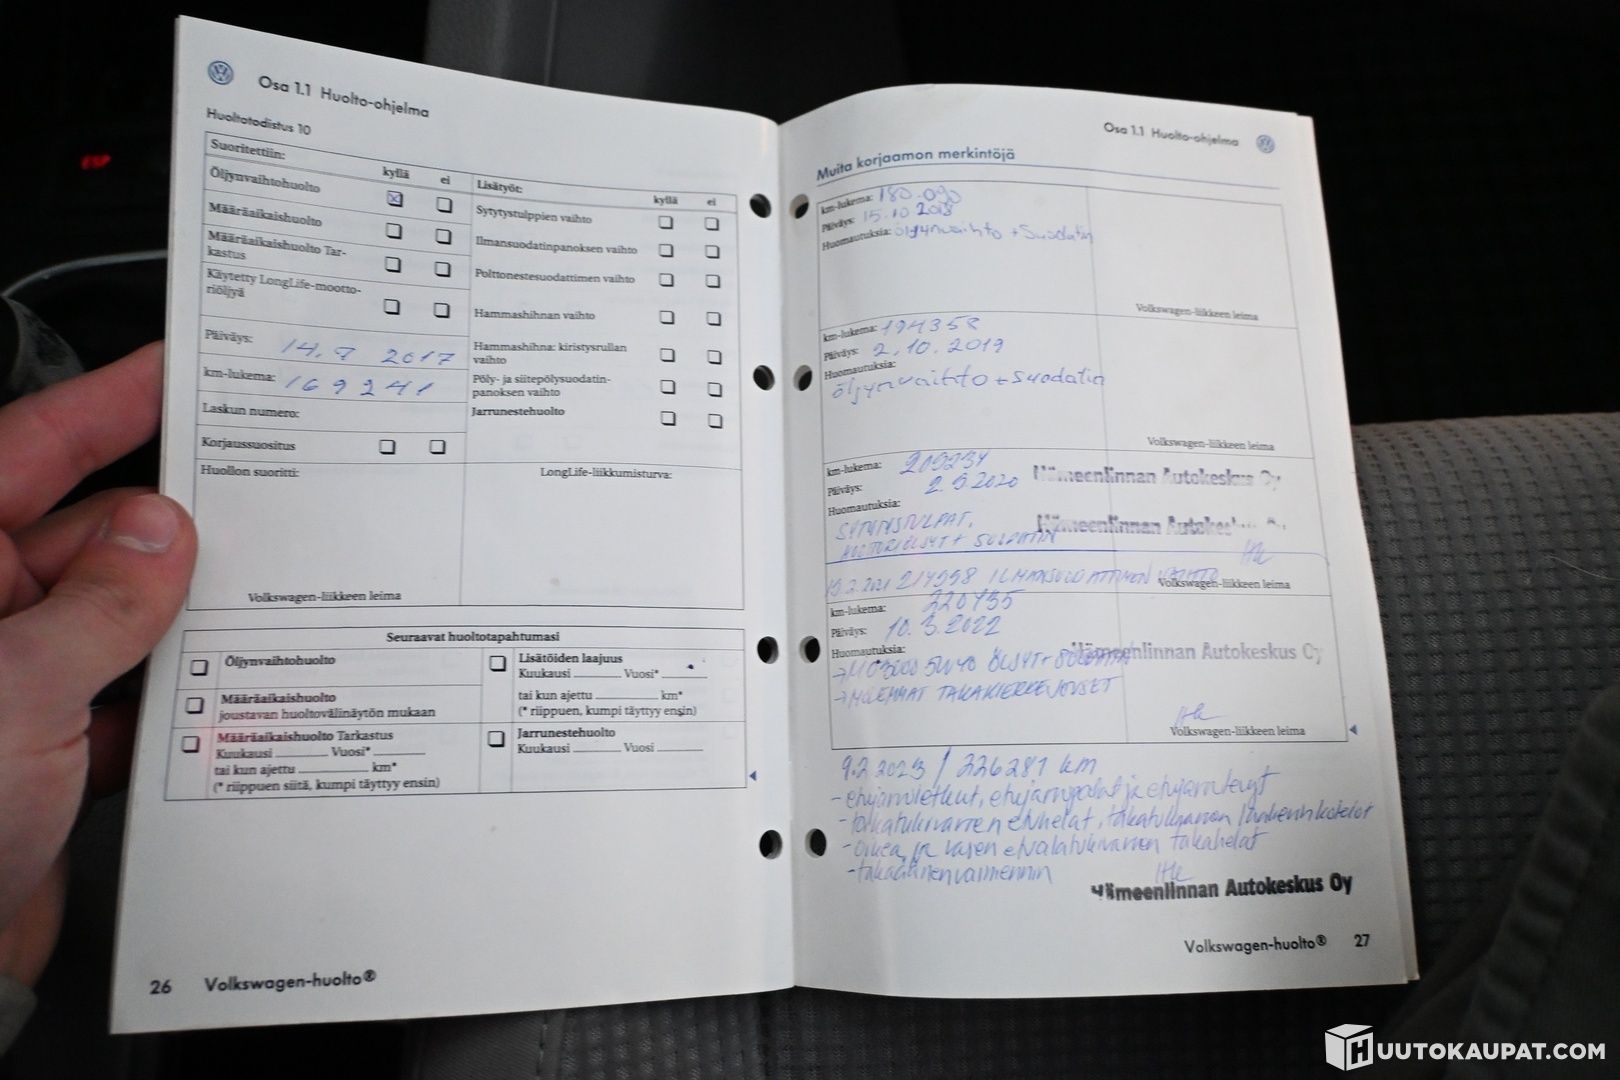 ESP
Osa 1.1 Huolto-ohjelma
Huoltotodistus 10
Suoritettiin:
kyllä ei
Öljynvaihtohuolto
Määräaikaishuolto
Määräaikaishuolto Tar-
kastus
Käytetty LongLife-mootto-
riöljyä
Päiväys: 14.7 2017
km-lukema: 169241
Laskun numero:
Korjaussuositus
Huollon suoritti:
Volkswagen-liikkeen leima
Lisätyöt:
kyllä ei
Sytytystulppien vaihto
Ilmansuodatinpanoksen vaihto
Polttonestesuodattimen vaihto
Hammashihnan vaihto
Hammashihna: kiristysrullan
vaihto
Pöly- ja siitepölysuodatin-
panoksen vaihto
Jarrunestehuolto
LongLife-liikkumisturva:
Seuraavat huoltotapahtumasi
Öljynvaihtohuolto
Määräaikaishuolto
joustavan huoltovälinäytön mukaan
Määräaikaishuolto Tarkastus
Kuukausi Vuosi*
tai kun ajettu km*
(* riippuen siitä, kumpi täyttyy ensin)
Lisätöiden laajuus
Kuukausi Vuosi*
tai kun ajettu km*
(* riippuen, kumpi täyttyy ensin)
Jarrunestehuolto
Kuukausi Vuosi
26 Volkswagen-huolto®
Osa 1.1 Huolto-ohjelma
Muita korjaamon merkintöjä
km-lukema: 180.090
Päiväys: 15.10 2018
Huomautuksia: öljynvaihto + Suodatin
Volkswagen-liikkeen leima
km-lukema: 194358
Päiväys: 2.10.2019
Huomautuksia:
öljynvaihto + Suodatin
Volkswagen-liikkeen leima
km-lukema: 209234
Päiväys: 2.9.2020
Huomautuksia:
Hämeenlinnan Autokeskus Oy
Hämeenlinnan Autokeskus Oy
SYTYTYSTULPAT,
MOOTTORIÖLJYT + SUODATIN
Volkswagen-liikkeen leima
19.2.2021 214998 ILMANSUODATTIMEN VAIHTO
km-lukema: 220735
Päiväys: 10.3.2022
Huomautuksia:
Hämeenlinnan Autokeskus Oy
5W40 ÖLJYT + SUODATIN
→ MOLEMMAT TAKAKIERREJOUSET
Volkswagen-liikkeen leima
9.2 2023 / 226281 km
- etujarruletkut, etujarrupalat ja etujarrulevyt
- takatukivarren etuhelat,
- oikea ja vasen etualatukivarren takahelat
- takaäänenvaimennin
Hämeenlinnan Autokeskus Oy
Volkswagen-huolto® 27
HUUTOKAUPAT.COM